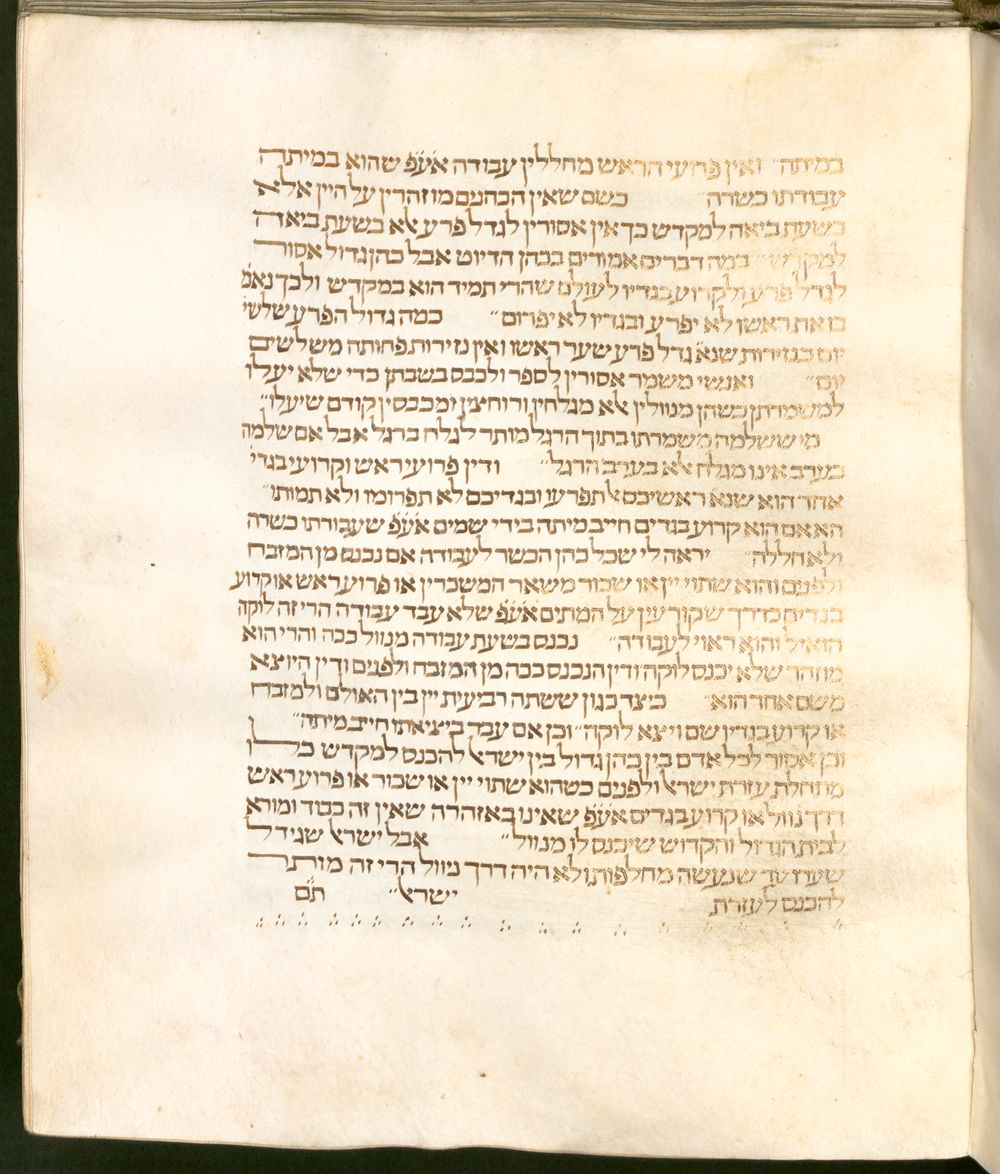 במיתה״ ואין פרועי הראש מחללין עבודה אע֗פ֗ שהוא במיתה
עבודתו כשרה״ כשם שאין הכהנים מוזהרין על היין אלא
בשעת ביאה למקדש כך אין אסורין לגדל פרע אלא בשעת ביאה
למקדש״ במה דברים אמורים בכהן הדיוט אבל כהן גדול אסור
לגדל פרע ולקרוע בגדיו לעולם שהרי תמיד הוא במקדש ולכך נאמ֗
בו את ראשו לא יפרע ובגדיו לא יפרום״ כמה גדול הפרע שלשי֗
יום כנזירות שנא֗ גדל פרע שער ראשו ואין נזירות פחותה משלשים
יום״ ואנשי משמר אסורין לספר ולכבס בשבתן כדי שלא יעלו
למשמרתן כשהן מנוולין אלא מגלחין ורוחצין ומכבסין קודם שיעלו״
מי ששלמה משמרתו בתוך הרגל מותר לגלח ברגל אבל אם שלמה
בערב אינו מגלח אלא בערב הרגל״ ודין פרועי ראש וקרועי בגדי
אחד הוא שנא֗ ראשיכם אל תפרעו ובגדיכם לא תפרומו ולא תמותו״
הא אם הוא קרוע בגדים חייב מיתה בידי שמים אע֗פ֗ שעבודתו כשרה
ולא חללה״ יראה לי שכל כהן הכשר לעבודה אם נכנס מן המזבח
ולפנים והוא שתוי יין או שכור משאר המשכרין או פרוע ראש או קרוע
בגדים כדרך שקורעין על המתים אע֗פ֗ שלא עבד עבודה הרי זה לוקה
הואיל והוא ראוי לעבודה״ נכנס בשעת עבודה מנוול ככה והרי הוא
מוזהר שלא יכנס לוקה ודין הנכנס ככה מן המזבח ולפנים ודין היוצא
משם אחד הוא״ כיצד כגון ששתה רביעית יין בין האולם ולמזבח
או קרוע בגדיו שם ויצא לוקה״ וכן אם עבד ביציאתו חייב מיתה״
וכן אסור לכל אדם בין כהן גדול בין ישראל להכנס למקדש כלו
מתחלת עזרת ישראל ולפנים כשהוא שתוי יין או שכור או פרוע ראש
דרך נוול או קרוע בגדים אע֗פ֗ שאינו באזהרה שאין זה כבוד ומורא
לבית הגדול והקדוש שיכנס לו מנוול״ אבל ישראל שגידל
שערו עד שנעשה מחלפות ולא היה דרך ניוול הרי זה מותר
להכנס לעזרת ישראל״ תם